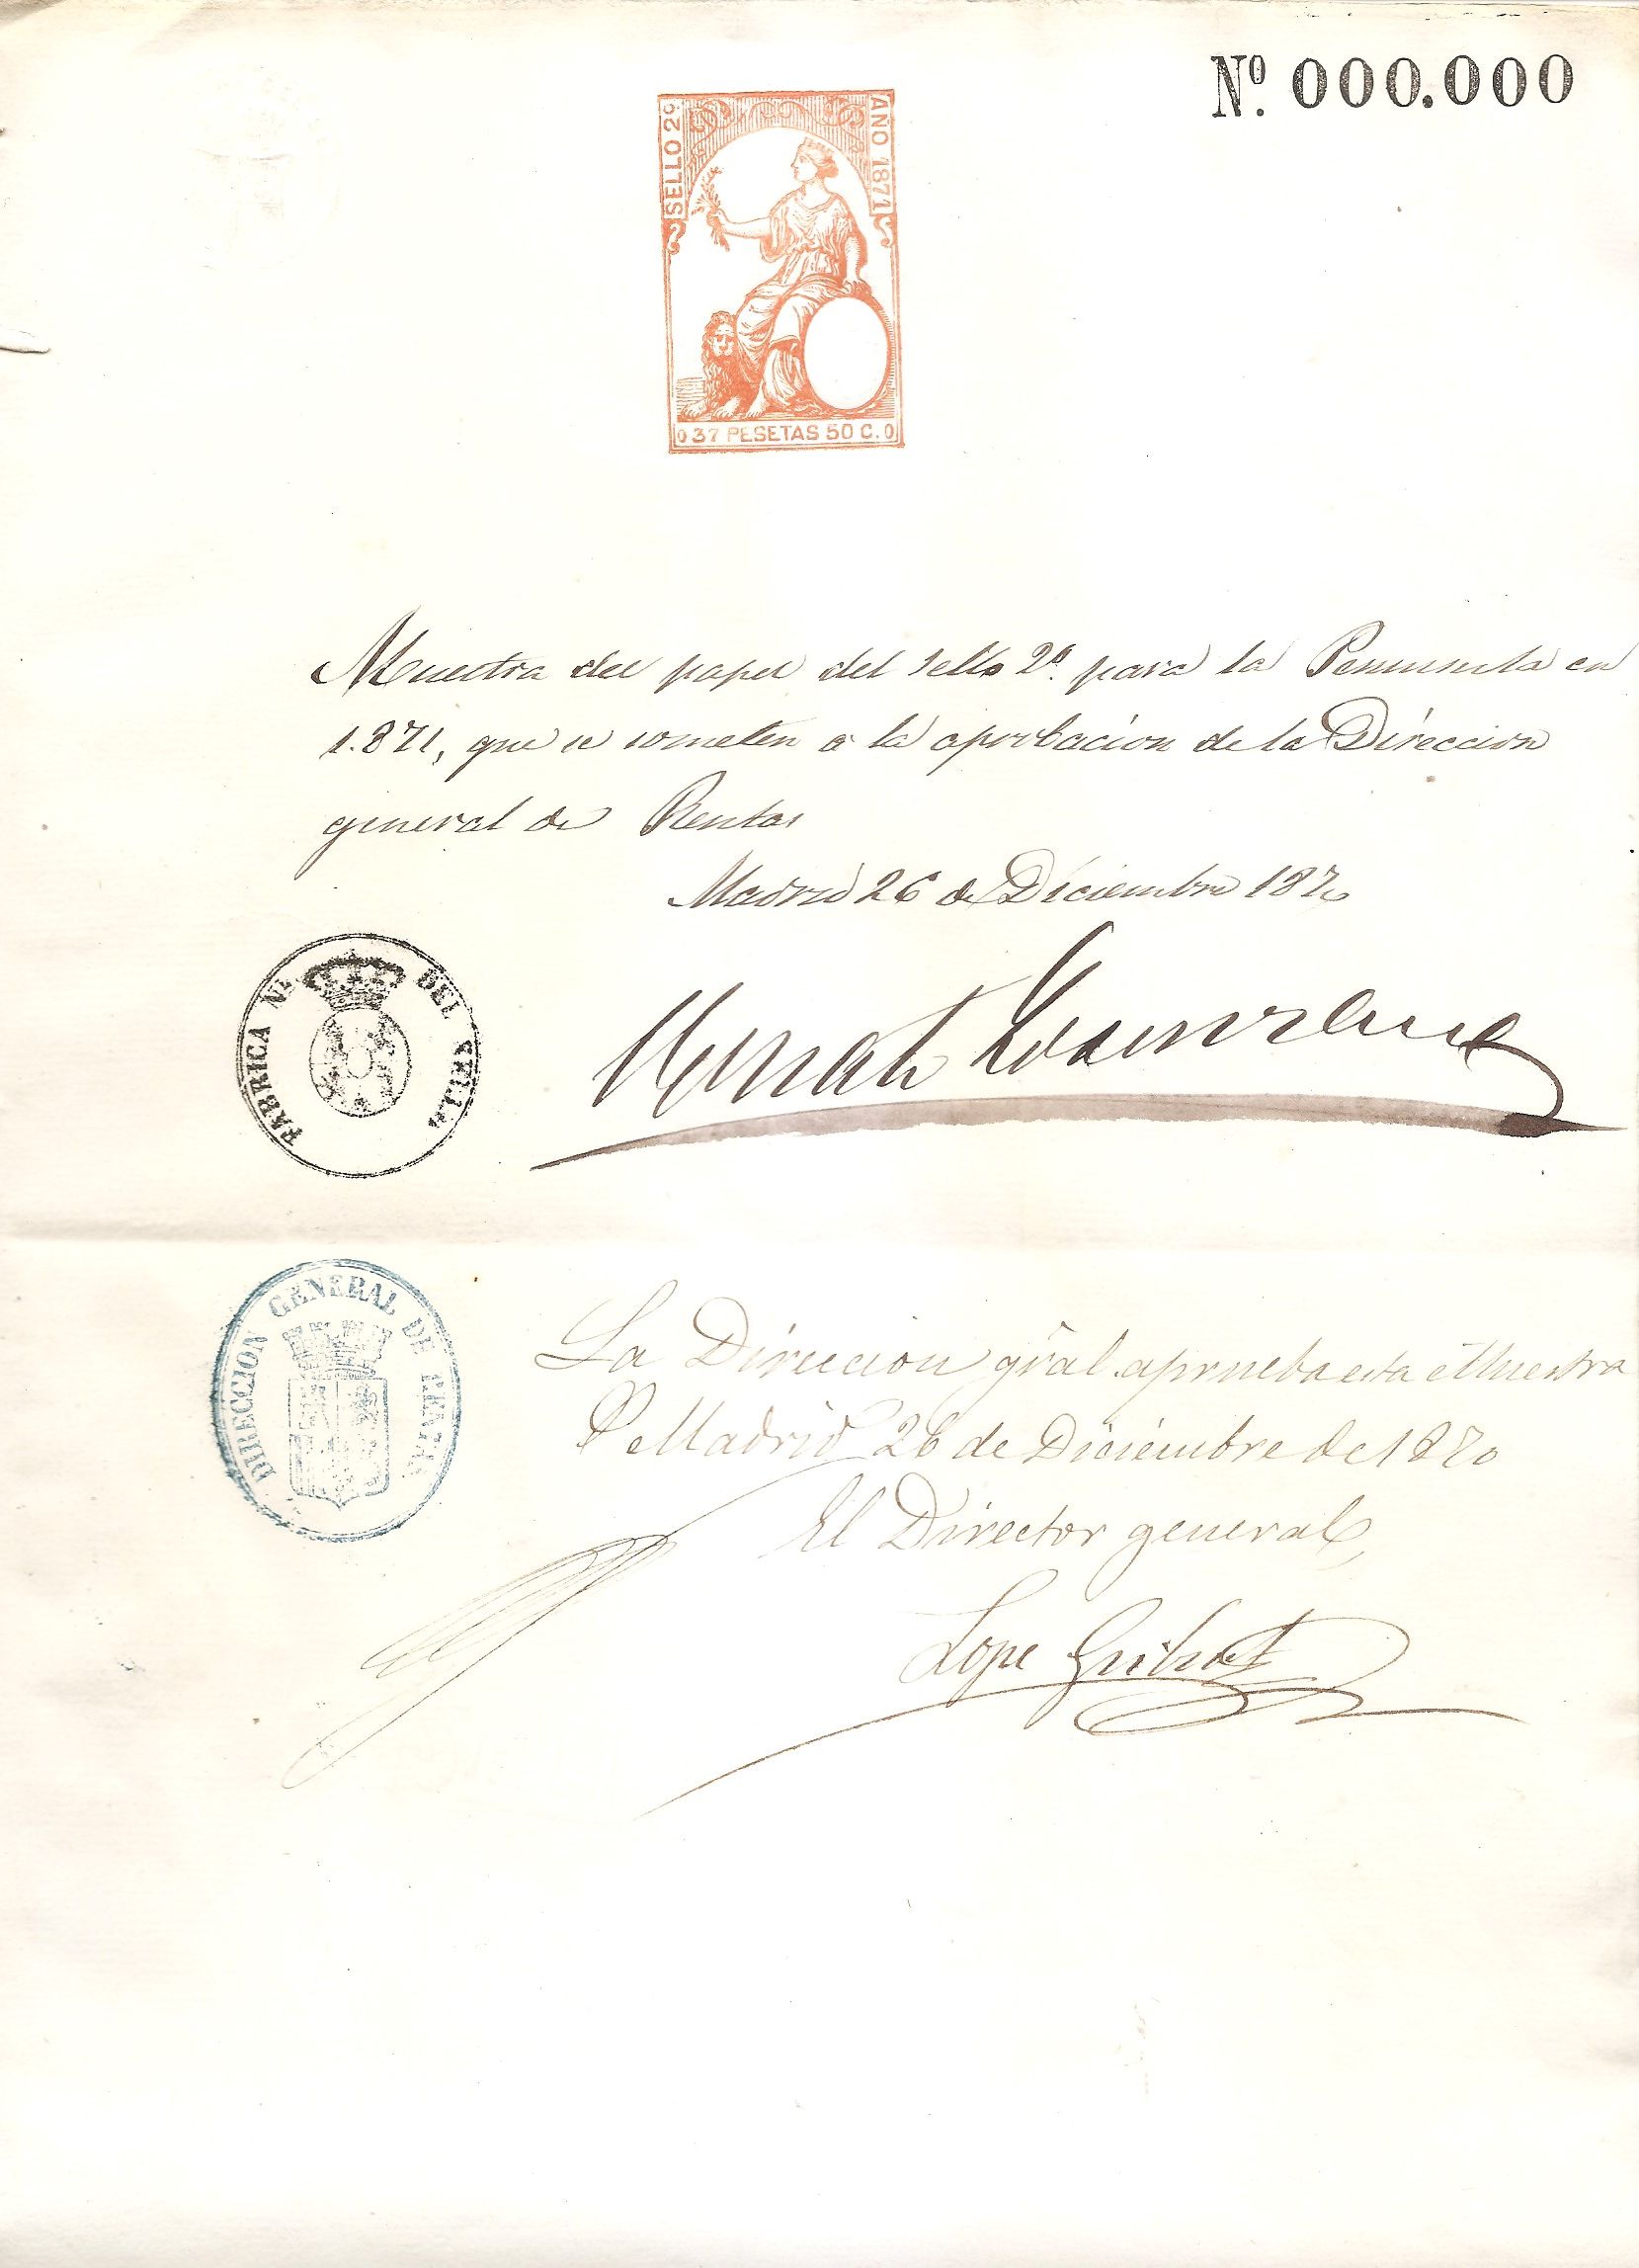 Nº. 000.000
SELLO 2º
AÑO 1871
0 37 PESETAS 50 C. 0
Muestra del papel del sello 2º para la Peninsula en
1.871, que se someten a la aprobacion de la Direccion
general de Rentas
Madrid 26 de Diciembre 1870
FABRICA NL DEL SELLO
DIRECCION GENERAL DE RENTAS
La Direccion gral. aprueba esta Muestra
Madrid 26 de Diciembre de 1870
El Director general,
Lope Gisbert